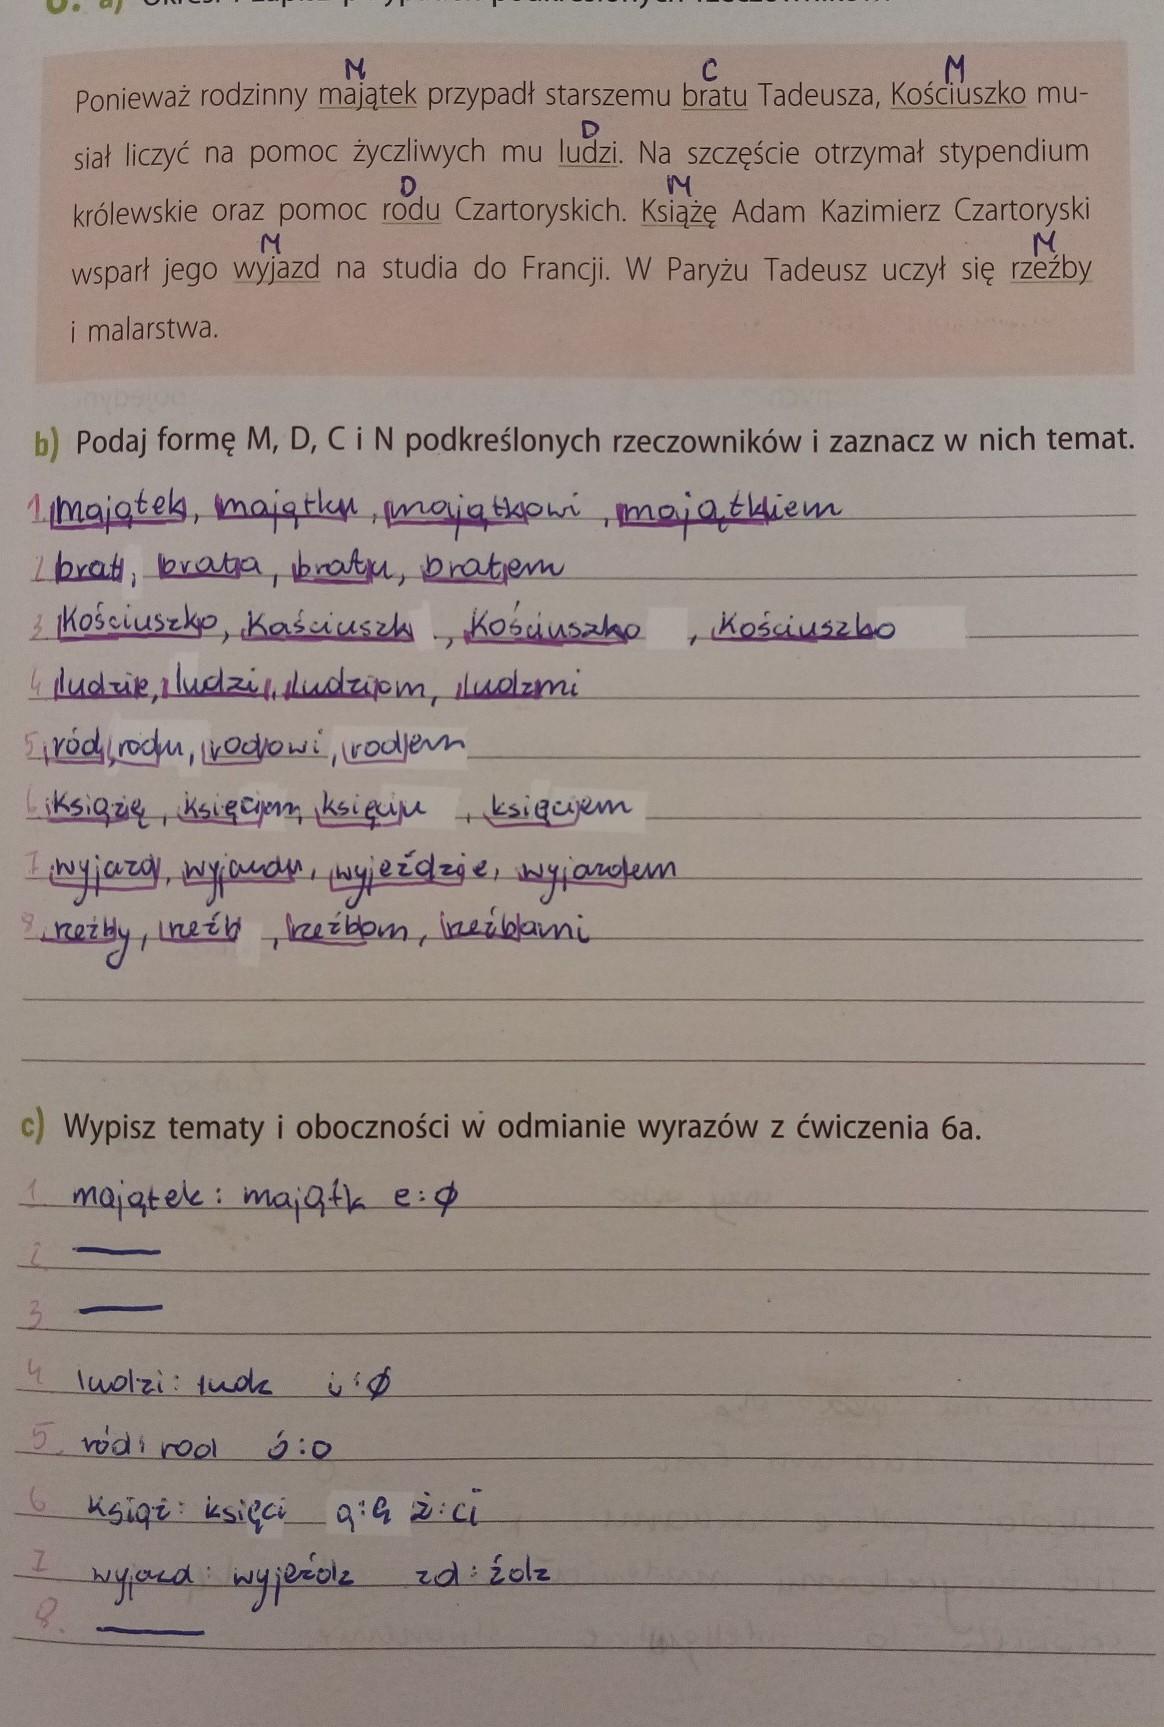 6. a) Określ i zapisz przypadki podkreślonych rzeczowników.
M C M
Ponieważ rodzinny majątek przypadł starszemu bratu Tadeusza, Kościuszko mu-
D
siał liczyć na pomoc życzliwych mu ludzi. Na szczęście otrzymał stypendium
D M
królewskie oraz pomoc rodu Czartoryskich. Książę Adam Kazimierz Czartoryski
M M
wsparł jego wyjazd na studia do Francji. W Paryżu Tadeusz uczył się rzeźby
i malarstwa.
b) Podaj formę M, D, C i N podkreślonych rzeczowników i zaznacz w nich temat.
1. majątek, majątku, majątkowi, majątkiem
2 brat, brata, bratu, bratem
3 Kościuszko, Kościuszk, Kościuszko, Kościuszko
4 ludzie, ludzi, ludziom, ludzmi
5 ród, rodu, rodowi, rodem
6 książę, księciem, księciu, księciem
7 wyjazd, wyjazdu, wyjeździe, wyjazdem
8 rzeźby, rzeźb, rzeźbom, rzeźbami
c) Wypisz tematy i oboczności w odmianie wyrazów z ćwiczenia 6a.
1 majątek : majątk e : ø
2 —
3 —
4 ludzi : ludz i : ø
5. ród : rod ó : o
6 książ : księci ą : ę ż : ci
7 wyjazd : wyjeźdz zd : źdz
8. —